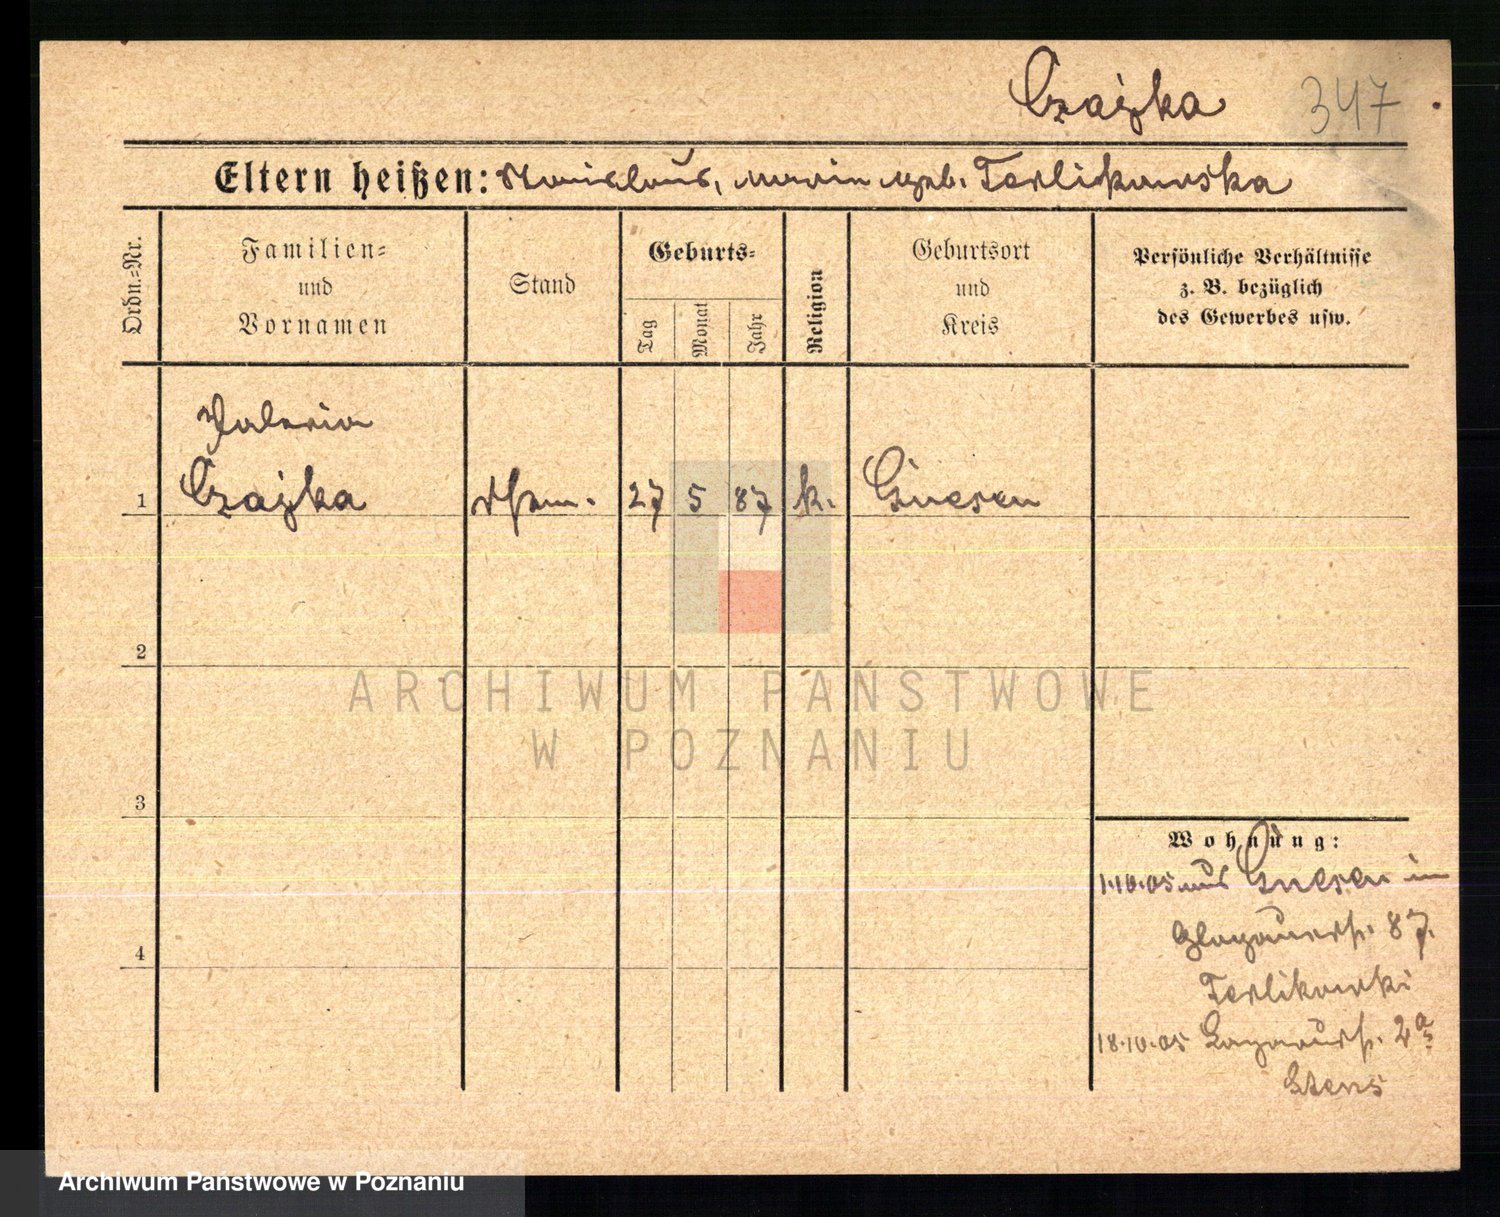 Czajka 347
Eltern heißen: Stanislaus, Marie geb. Terlikowska
Ordn.=Nr.
Familien=
und
Vornamen
Stand
Geburts=
Tag
Monat
Jahr
Religion
Geburtsort
und
Kreis
Persönliche Verhältnisse
z. B. bezüglich
des Gewerbes usw.
Valeria
1 Czajka 27 5 87 k. Gnesen
2
3
4
Wohnung:
1.10.05 aus Gnesen in
Glogauerstr. 87.
Terlikowski
18.10.05 2a
ARCHIWUM PAŃSTWOWE
W POZNANIU
Archiwum Państwowe w Poznaniu